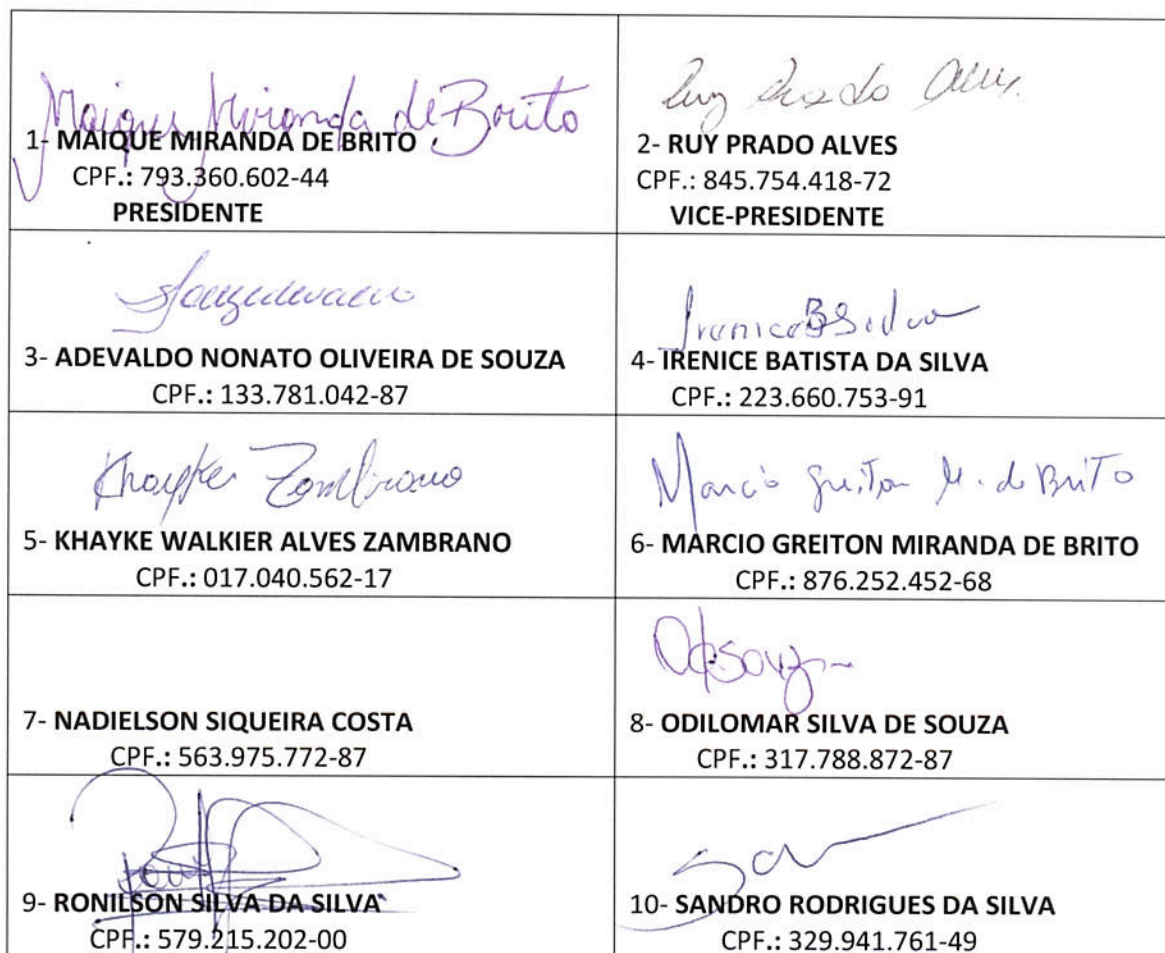 Maique Miranda de Brito
1- MAIQUE MIRANDA DE BRITO
CPF.: 793.360.602-44
PRESIDENTE
Ruy Prado Alves
2- RUY PRADO ALVES
CPF.: 845.754.418-72
VICE-PRESIDENTE
3- ADEVALDO NONATO OLIVEIRA DE SOUZA
CPF.: 133.781.042-87
Irenice B Silva
4- IRENICE BATISTA DA SILVA
CPF.: 223.660.753-91
Khayke Zambrano
5- KHAYKE WALKIER ALVES ZAMBRANO
CPF.: 017.040.562-17
Marcio Greiton M. de Brito
6- MARCIO GREITON MIRANDA DE BRITO
CPF.: 876.252.452-68
7- NADIELSON SIQUEIRA COSTA
CPF.: 563.975.772-87
8- ODILOMAR SILVA DE SOUZA
CPF.: 317.788.872-87
9- RONILSON SILVA DA SILVA
CPF.: 579.215.202-00
10- SANDRO RODRIGUES DA SILVA
CPF.: 329.941.761-49